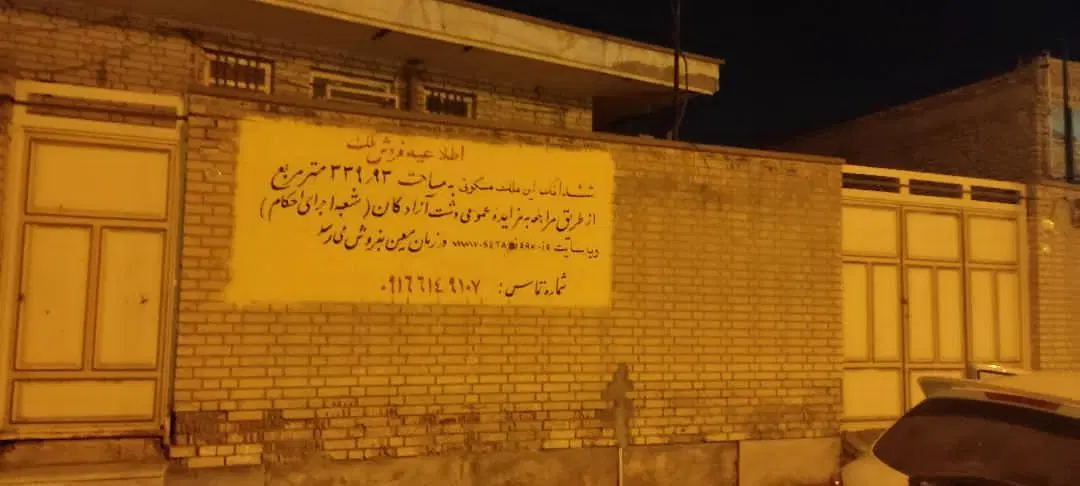 اطلاعیه فروش ملک
ششدانگ این ملک مسکونی به مساحت ۳۳۹/۹۳ متر مربع
از طریق مراجعه به مزایده عمومی دشت آزادگان (شعبه اجرای احکام)
وب سایت www.setadiran.ir در زمان معین بفروش می رسد
شماره تماس: ۰۹۱۶۶۱۴۹۱۰۷